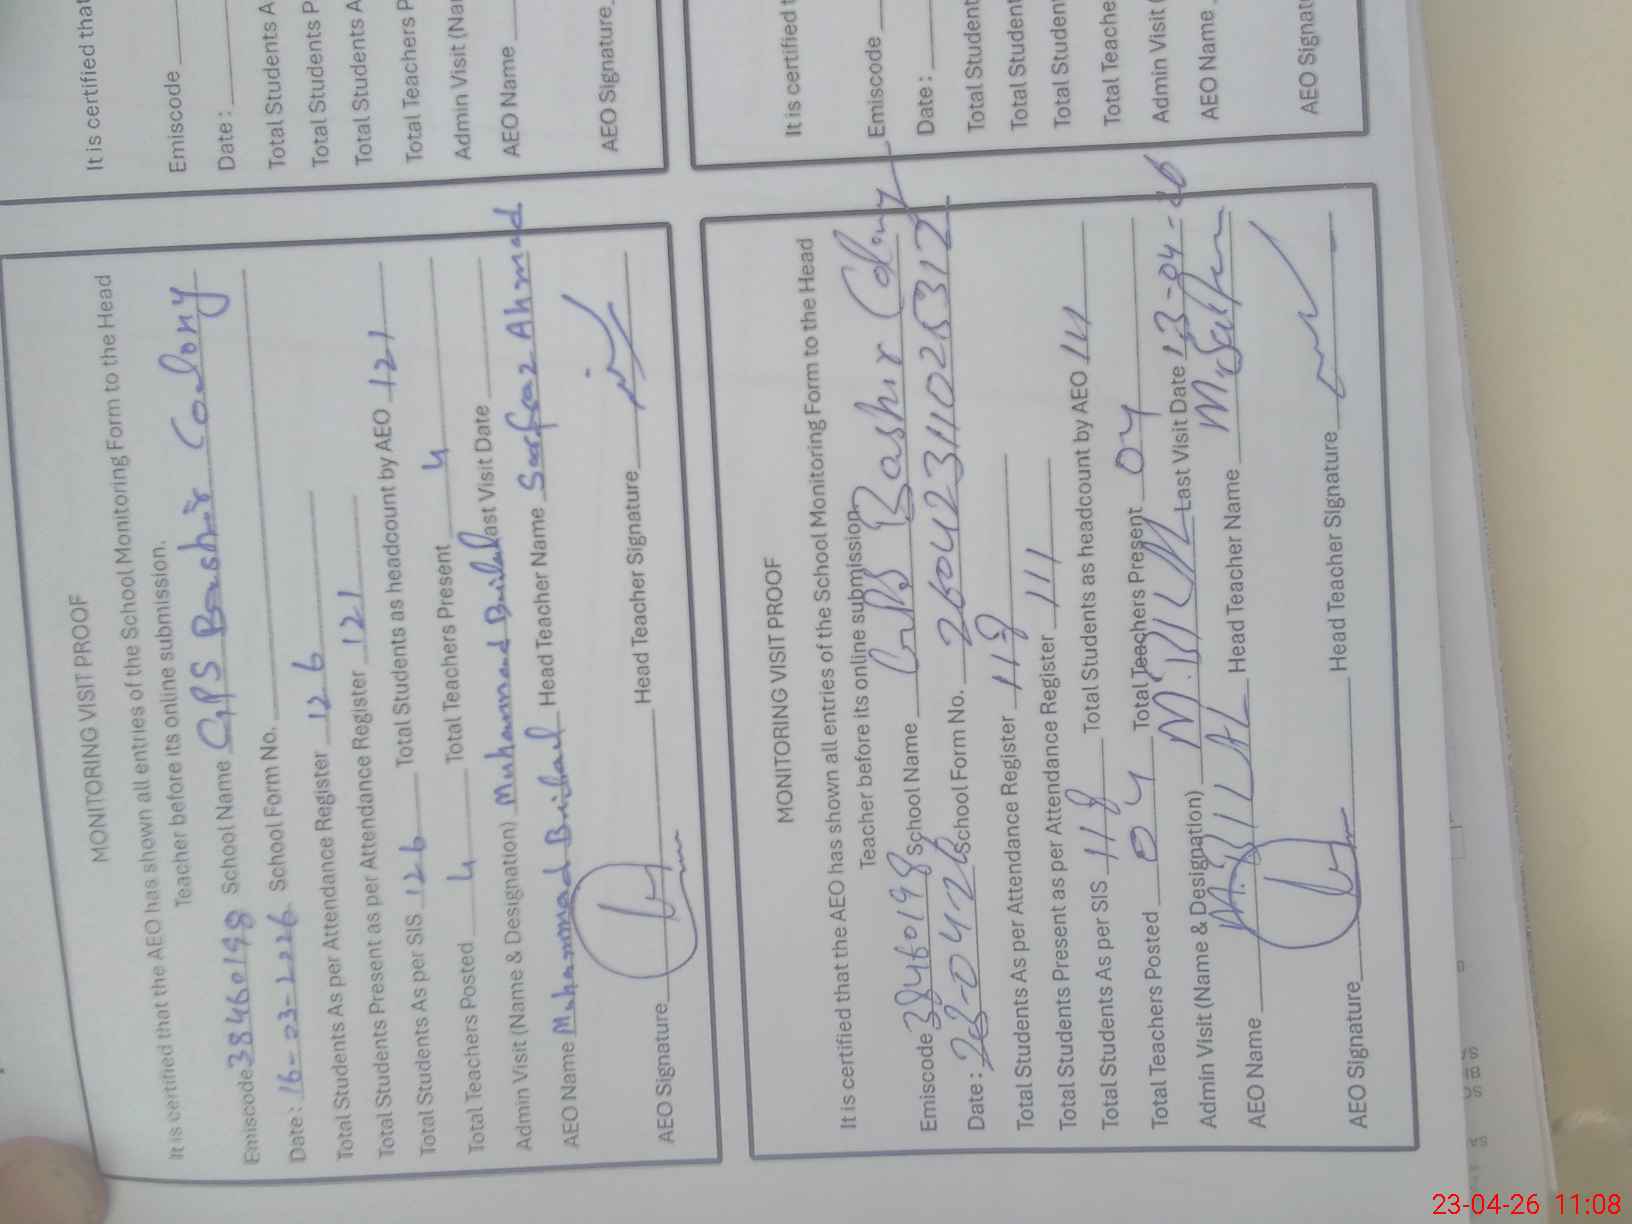 MONITORING VISIT PROOF
It is certified that the AEO has shown all entries of the School Monitoring Form to the Head
Teacher before its online submission.
Emiscode 38460198 School Name GPS Bashir Coalony
Date: 16-03-2026 School Form No.
Total Students As per Attendance Register 126
Total Students Present as per Attendance Register 121
Total Students As per SIS 126 Total Students as headcount by AEO 121
Total Teachers Posted 4 Total Teachers Present 4
Admin Visit (Name & Designation) Muhammad Last Visit Date
AEO Name Muhammad Head Teacher Name Sarfraz Ahmad
AEO Signature Head Teacher Signature
MONITORING VISIT PROOF
It is certified that the AEO has shown all entries of the School Monitoring Form to the Head
Teacher before its online submission
Emiscode 38460198 School Name GPS Bashir Colony
Date: School Form No. 260423110285312
Total Students As per Attendance Register 118
Total Students Present as per Attendance Register 111
Total Students As per SIS 118 Total Students as headcount by AEO 111
Total Teachers Posted 04 Total Teachers Present 04
Admin Visit (Name & Designation) M. BILAL Last Visit Date 13-04-26
AEO Name M. BILAL Head Teacher Name
AEO Signature Head Teacher Signature
It is certified that
Emiscode
Date:
Total Students A
Total Students P
Total Students A
Total Teachers P
Admin Visit (Na
AEO Name
AEO Signature
It is certified t
Emiscode
Date:
Total Student
Total Student
Total Student
Total Teache
Admin Visit (
AEO Name
AEO Signat
23-04-26 11:08